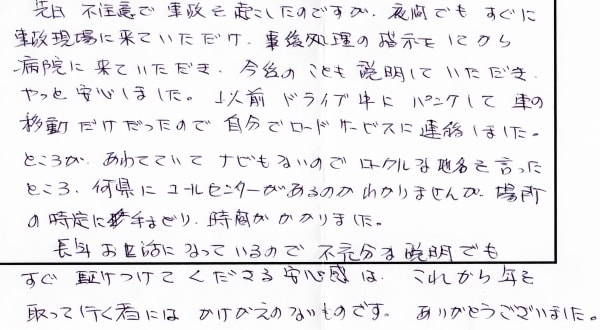 先日 不注意で 事故を起こしたのですが、夜間でも すぐに
事故現場に来ていただけ、事後処理の指示をしてから
病院に来ていただき、今後のことも説明していただき、
やっと安心しました。以前ドライブ中にパンクして車の
移動だけだったので自分でロードサービスに連絡しました。
ところが、あわてていてナビもないのでローカルな地名を言った
ところ、何県にコールセンターがあるのかわかりませんが、場所
の特定に手まどり、時間がかかりました。
長年お世話になっているので不充分な説明でも
すぐ駆けつけてくださる安心感は、これから年を
取って行く者にはかけがえのないものです。ありがとうございました。